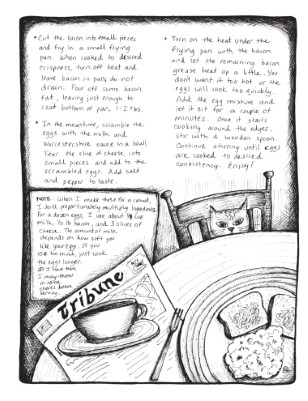 • Cut the bacon into small pieces
and fry in a small frying
pan. When cooked to desired
crispness, turn off heat and
leave bacon in pan, do not
drain. Pour off some bacon
fat, leaving just enough to
coat bottom of pan, 1-2 tbs.
• In the meantime, scramble the
eggs with the milk and
Worcestershire sauce in a bowl.
Tear the slice of cheese into
small pieces and add to the
scrambled eggs. Add salt
and pepper to taste.
• Turn on the heat under the
frying pan with the bacon
and let the remaining bacon
grease heat up a little. You
don't want it too hot or the
eggs will cook too quickly.
Add the egg mixture and
let it sit for a couple of
minutes. Once it starts
cooking around the edges,
stir with a wooden spoon.
Continue stirring until eggs
are cooked to desired
consistency. Enjoy!
NOTE: When I make these for a crowd,
I don't proportionately multiply ingredients
for a dozen eggs, I use about 1/4 cup
milk, 1/2 lb bacon, and 3 slices of
cheese. The amount of milk
depends on how soft you
like your eggs. If you
use too much, just cook
the eggs longer.
I may throw
in some
cheese before
serving.
Tribune